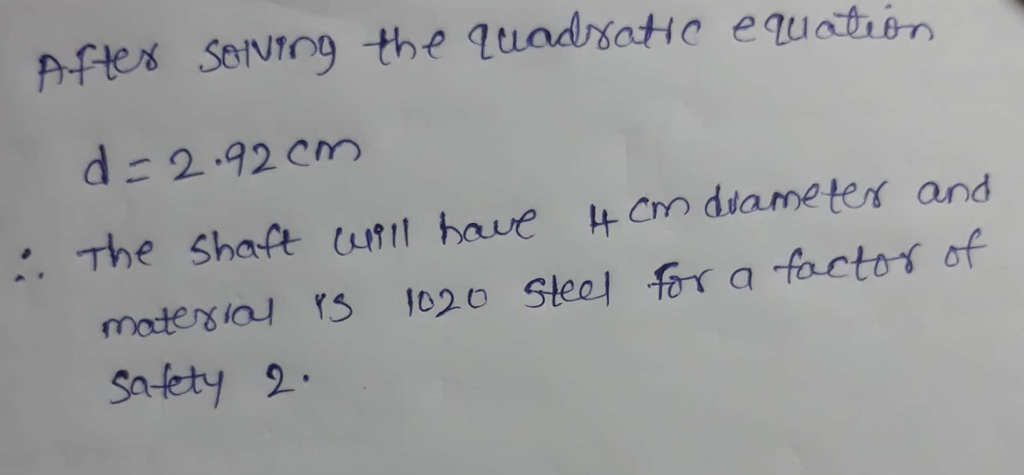 After solving the quadratic equation
d = 2.92 cm
∴ The shaft will have 4 cm diameter and
material is 1020 steel for a factor of
safety 2.